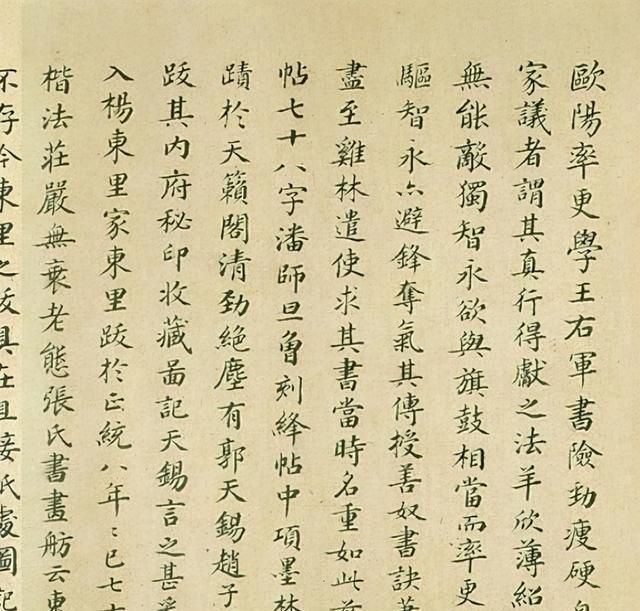 歐陽率更學王右軍書險勁瘦硬自
家議者謂其真行得獻之法羊欣薄紹
無能敵獨智永欲與旗鼓相當而率更
驅智永亦避鋒奪氣其傳授善奴書訣
盡至雞林遣使求其書當時名重如此
帖七十八字潘師旦曾刻絳帖中項墨林
蹟於天籟閣清勁絕塵有郭天錫趙子
跋其內府秘印收藏啚記天錫言之甚
入楊東里家東里跋於正統八年年已七十
楷法莊嚴無衰老態張氏書畫舫云東
不存今東里之跋具在且姜氏處圖記